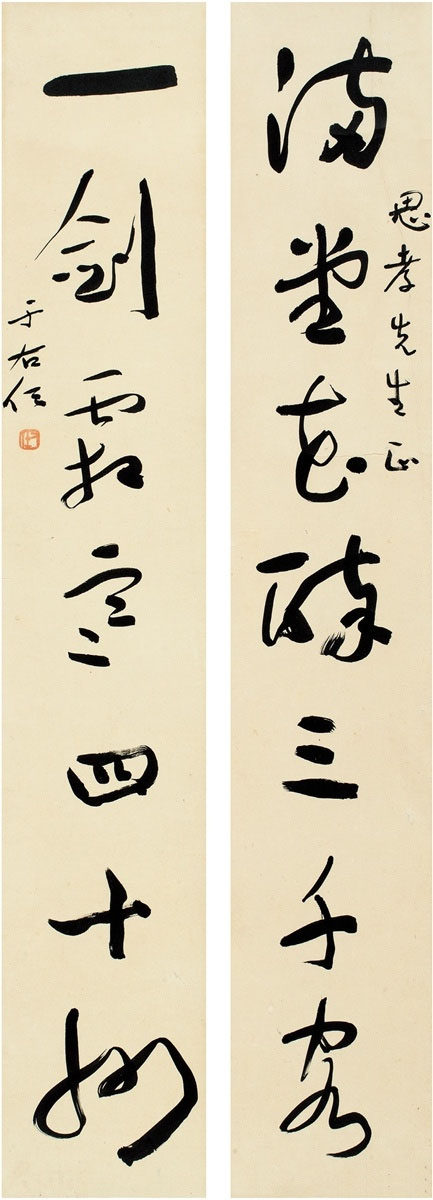 满堂花醉三千客
思孝先生正
一剑霜寒四十州
于右任